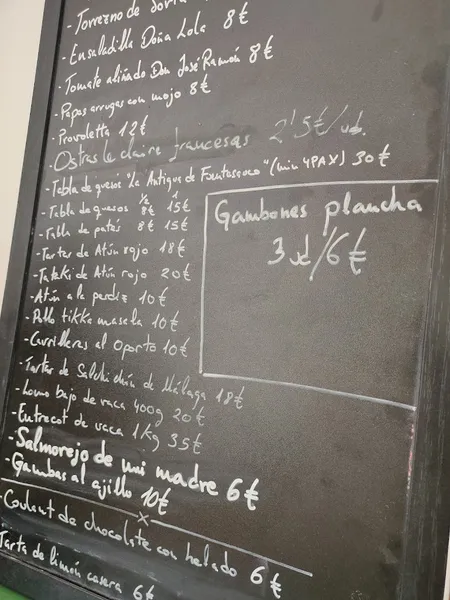 - Torrezno de Soria
- Ensaladilla Doña Lola 8€
- Tomate aliñado Don José Ramón 8€
- Papas arrugas con mojo 8€
- Provoletta 12€
- Ostras de claire francesas 2'5€/ud.
- Tabla de quesos "La Antigua de Fuentesauco" (min 4PAX) 30€
1/2 1
- Tabla de quesos 8€ 15€
- Tabla de patés 8€ 15€
- Tartar de Atún rojo 18€
- Tataki de Atún rojo 20€
- Atún a la perdiz 10€
- Pollo tikka masala 10€
- Carrilleras al Oporto 10€
- Tartar de Salchichón de Málaga 18€
- Lomo bajo de vaca 400g 20€
- Entrecot de vaca 1Kg 35€
- Salmorejo de mi madre 6€
- Gambas al ajillo 10€
- Coulant de chocolate con helado 6€
Tarta de limón casera 6€
Gambones plancha
3 ud/6€